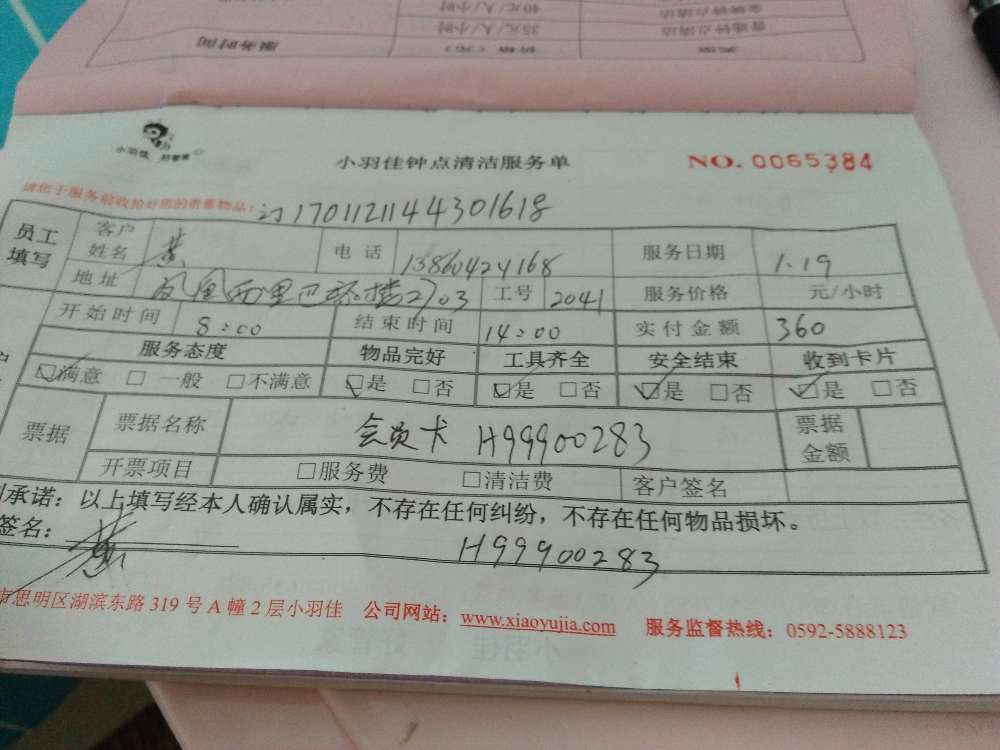 服务时间 价格（元） 类型
35元/人/小时 普通钟点清洁
40元/人/小时 金牌钟点清洁
小羽佳 好管家
小羽佳钟点清洁服务单 NO. 0065384
请您于服务前收拾好您的贵重物品！ 订1701121144301618
员工填写 客户姓名 黄 电话 13860424168 服务日期 1.19
地址 凤凰西里 2703 工号 2041 服务价格 元/小时
开始时间 8:00 结束时间 14:00 实付金额 360
服务态度 物品完好 工具齐全 安全结束 收到卡片
☑满意 □一般 □不满意 ☑是 □否 ☑是 □否 ☑是 □否 ☑是 □否
票据 票据名称 会员卡 H99900283 票据金额
开票项目 □服务费 □清洁费 客户签名
承诺：以上填写经本人确认属实，不存在任何纠纷，不存在任何物品损坏。
签名： 黄 H99900283
市思明区湖滨东路 319 号 A 幢 2 层小羽佳 公司网站：www.xiaoyujia.com 服务监督热线：0592-5888123